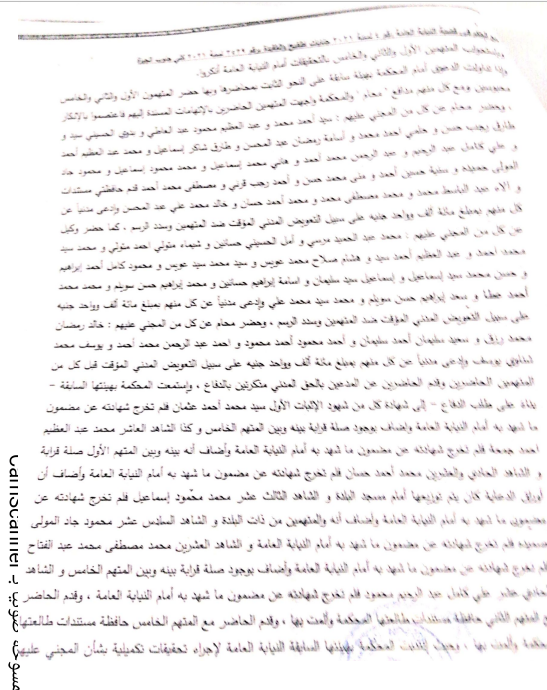 تابع الحكم في قضية النيابة العامة رقم ٤ لسنة ٢٠٢١ جنايات
وباستجواب المتهمين الأول والثاني والخامس بالتحقيقات أمام النيابة العامة أنكروا.
وإذ تداولت الدعوى أمام المحكمة بهيئة سابقة على النحو الثابت بمحاضرها وبها حضر المتهمون الأول والثاني والخامس
محبوسين ومع كل منهم مدافع "محام" والمحكمة واجهت المتهمين الحاضرين بالاتهامات المسندة إليهم فاعتصموا بالإنكار
، وحضر محام عن كل من المجني عليهم : سيد أحمد محمد و عبد العظيم محمود عبد العاطي و شوقي الحسيني سيد و
طارق رجب حسن و حلمي احمد محمد و أسامة رمضان عبد المحسن و طارق شاكر إسماعيل و محمد عبد العظيم أحمد
و علي كامل عبد الرحيم و عبد الرحمن محمد أحمد و هاني محمد إسماعيل و محمد محمود إسماعيل و محمود جاد
المولى حميده و سنية حسين أحمد و منى محمد حسن و أحمد رجب قرني و مصطفى محمد أحمد قدم حافظتي مستندات
و الاء عبد الباسط محمد و محمد مصطفى محمد و محمد أحمد حسان و خالد محمد علي عبد المحسن وإدعى مدنياً عن
كل منهم بمبلغ مائة ألف وواحد جنيه على سبيل التعويض المدني المؤقت ضد المتهمين وسند الرسم ، كما حضر وكيل
عن كل من المجني عليهم : محمد عبد الحميد مرسي و أمل الحسيني حسانين و شيماء متولي احمد متولي و محمد سيد
محمد احمد و عبد العظيم أحمد سيد و هشام صلاح محمد عويس و سيد محمد سيد عويس و محمود كامل أحمد إبراهيم
و حسن محمد سيد إسماعيل و إسماعيل سيد سليمان و اسامة إبراهيم حسانين و محمد إبراهيم حسن سويلم و محمد محمد
أحمد عطا و سعد إبراهيم حسن سويلم و محمد سيد محمد علي وإدعى مدنياً عن كل منهم بمبلغ مائة ألف وواحد جنيه
على سبيل التعويض المدني المؤقت ضد المتهمين وسند الرسم ، وحضر محام عن كل من المجني عليهم : خالد رمضان
محمد رزق و سعيد سليمان أحمد سليمان و أحمد محمود أحمد محمود و احمد عبد الرحمن محمد أحمد و يوسف محمد
يوسف وإدعى مدنياً عن كل منهم بمبلغ مائة ألف وواحد جنيه على سبيل التعويض المدني المؤقت قبل كل من
المتهمين الحاضرين وقدم الحاضرين عن المدعين بالحق المدني مذكرتين بالدفاع ، وإستمعت المحكمة بهيئتها السابقة –
بناء على طلب الدفاع – إلى شهادة كل من شهود الإثبات الأول سيد محمد أحمد عثمان فلم تخرج شهادته عن مضمون
ما شهد به أمام النيابة العامة وأضاف بوجود صلة قرابة بينه وبين المتهم الخامس و كذا الشاهد العاشر محمد عبد العظيم
احمد جمعة فلم تخرج شهادته عن مضمون ما شهد به أمام النيابة العامة وأضاف أنه بينه وبين المتهم الأول صلة قرابة
و الشاهد الحادي والعشرين محمد أحمد حسان فلم تخرج شهادته عن مضمون ما شهد به أمام النيابة العامة وأضاف أن
أوراق الدعاية كان يتم توزيعها أمام مسجد البلدة و الشاهد الثالث عشر محمد محمود إسماعيل فلم تخرج شهادته عن
مضمون ما شهد به أمام النيابة العامة وأضاف أنه والمتهمين من ذات البلدة و الشاهد السادس عشر محمود جاد المولى
حميده فلم تخرج شهادته عن مضمون ما شهد به أمام النيابة العامة و الشاهد العشرين محمد مصطفى محمد عبد الفتاح
فلم تخرج شهادته عن مضمون ما شهد به أمام النيابة العامة وأضاف بوجود صلة قرابة بينه وبين المتهم الخامس و الشاهد
الحادي عشر علي كامل عبد الرحيم محمود فلم تخرج شهادته عن مضمون ما شهد به أمام النيابة العامة ، وقدم الحاضر
مع المتهم الثاني حافظة مستندات طالعتها المحكمة وألمت بها ، وقدم الحاضر مع المتهم الخامس حافظة مستندات طالعتها
المحكمة وألمت بها ، وحيث إنتدبت المحكمة بهيئتها السابقة النيابة العامة لإجراء تحقيقات تكميلية بشأن المجني عليهم
ممسوحة ضوئيا بـ CamScanner